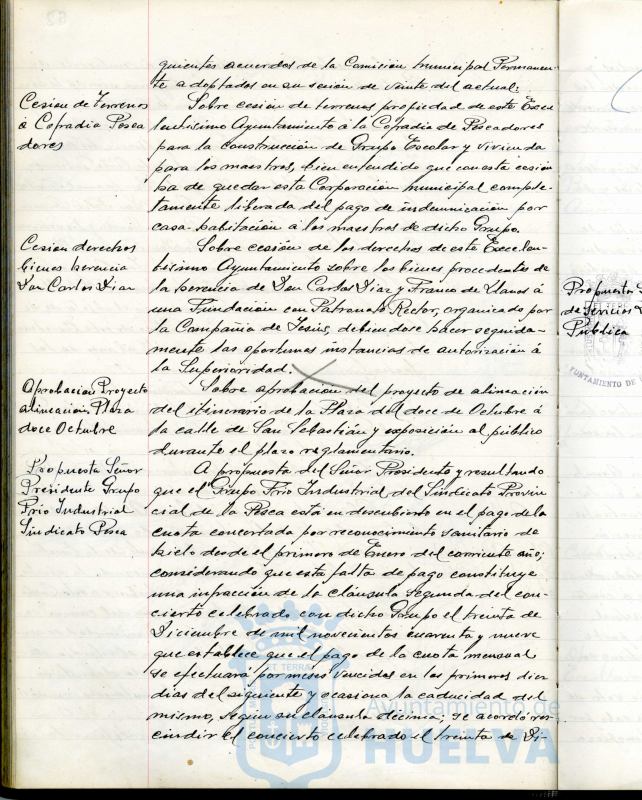 quientes acuerdos de la Comisión Municipal Permanen-
te adoptados en su sesión de veinte del actual:
Cesion de Terrenos
á Cofradia Pesca
dores
Sobre cesión de terrenos propiedad de este Exce
lentísimo Ayuntamiento á la Cofradia de Pescadores
para la construcción de Grupo Escolar y vivienda
para los maestros, bien entendido que con esta cesión
ha de quedar esta Corporación municipal comple-
tamente liberada del pago de indemnización por
casa-habitación á los maestros de dicho Grupo.
Cesion derechos
bienes herencia
Don Carlos Diaz
Sobre cesión de los derechos de este Excelen-
tísimo Ayuntamiento sobre los bienes procedentes de
la herencia de Don Carlos Diaz y Franco de Llanos á
una Fundación con Patronato Rector, organizado por
la Compañia de Jesús, debiendose hacer seguida-
mente las oportunas instancias de autorización á
la Superioridad.
Aprobacion Proyecto
alineacion Plaza
doce Octubre
Sobre aprobación del proyecto de alineación
del itinerario de la Plaza del doce de Octubre á
la calle de San Sebastián y exposición al público
durante el plazo reglamentario.
Propuesta Señor
Presidente Grupo
Frio Industrial
Sindicato Pesca
A propuesta del Señor Presidente y resultando
que el Grupo Frio Industrial del Sindicato Provin
cial de la Pesca está en descubierto en el pago de la
cuota concertada por reconocimiento sanitario de
hielo desde el primero de Enero del corriente año;
considerando que esta falta de pago constituye
una infracción de la cláusula segunda del con-
cierto celebrado con dicho Grupo el treinta de
Diciembre de mil novecientos cuarenta y nueve
que establece que el pago de la cuota mensual
se efectuará por meses vencidos en los primeros diez
dias del siguiente y ocasiona la caducidad del
mismo, según su cláusula décima; se acordó res-
cindir el concierto celebrado el treinta de Di-
Propuesta
de Servicios
Publica
Ayuntamiento de
HUELVA